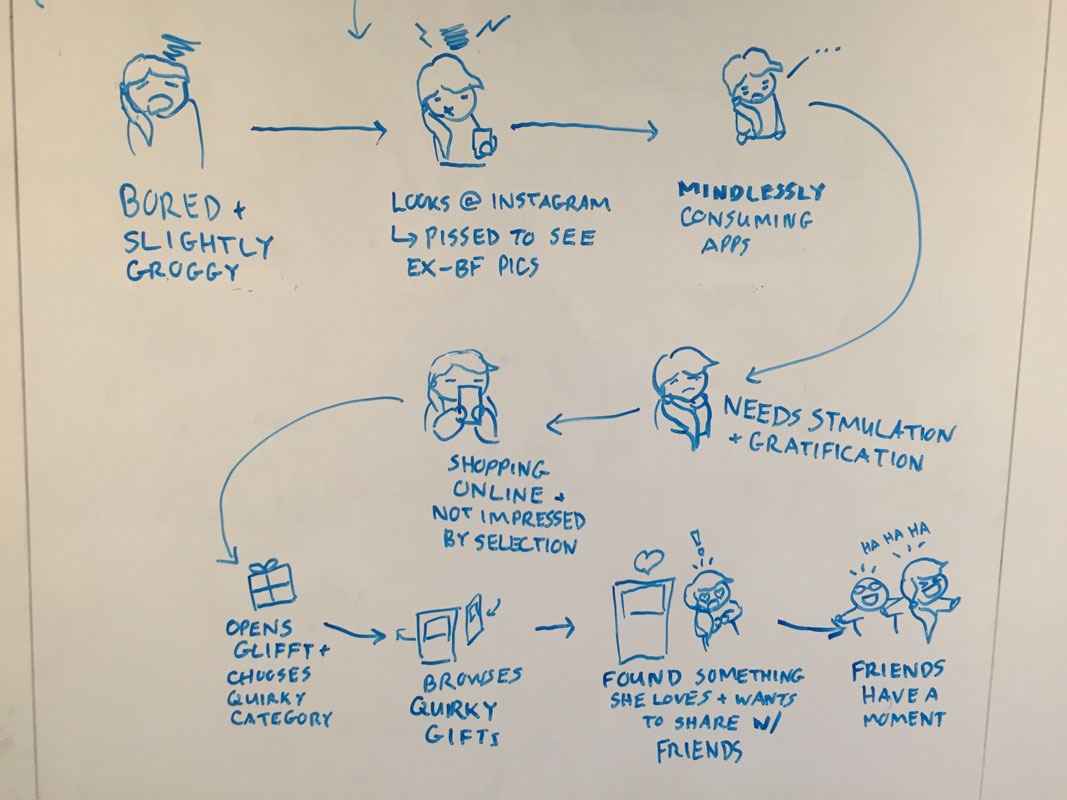 BORED +
SLIGHTLY
GROGGY
LOOKS @ INSTAGRAM
↳ PISSED TO SEE
EX-BF PICS
...
MINDLESSLY
CONSUMING
APPS
NEEDS STMULATION
+ GRATIFICATION
SHOPPING
ONLINE +
NOT IMPRESSED
BY SELECTION
OPENS
GLIFFT +
CHOOSES
QUIRKY
CATEGORY
BROWSES
QUIRKY
GIFTS
!
FOUND SOMETHING
SHE LOVES + WANTS
TO SHARE W/
FRIENDS
HA HA HA
FRIENDS
HAVE A
MOMENT